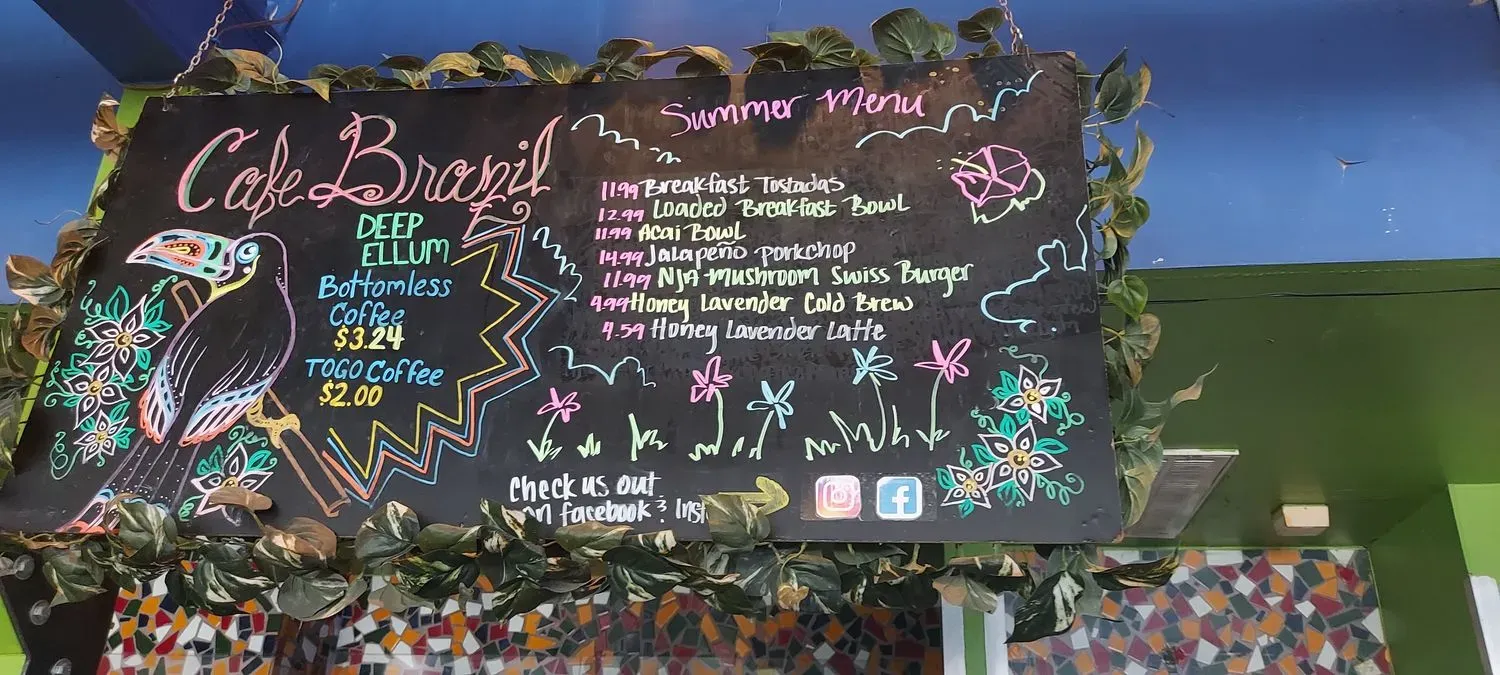 Cafe Brazil
DEEP
ELLUM
Bottomless
Coffee
$3.24
TOGO Coffee
$2.00
Summer Menu
11.99 Breakfast Tostadas
12.99 Loaded Breakfast Bowl
11.99 Acai Bowl
14.99 Jalapeño Porkchop
11.99 NJA Mushroom Swiss Burger
4.99 Honey Lavender Cold Brew
4.59 Honey Lavender Latte
Check us out
on facebook & Inst